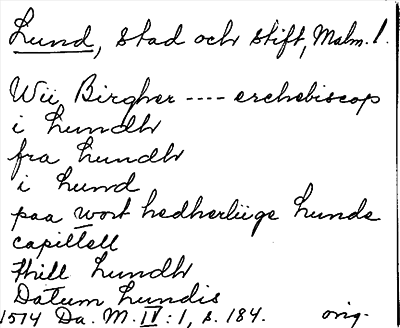 Lund, stad och stift, Malm. l.
Wii Birgher ---- erchebiscop
i Lundh
fra Lundh
i Lund
paa wort hedherliige Lunde
capittell
thill Lundh
Datum Lundis
1514 Da. M. IV:1, s. 184. orig.